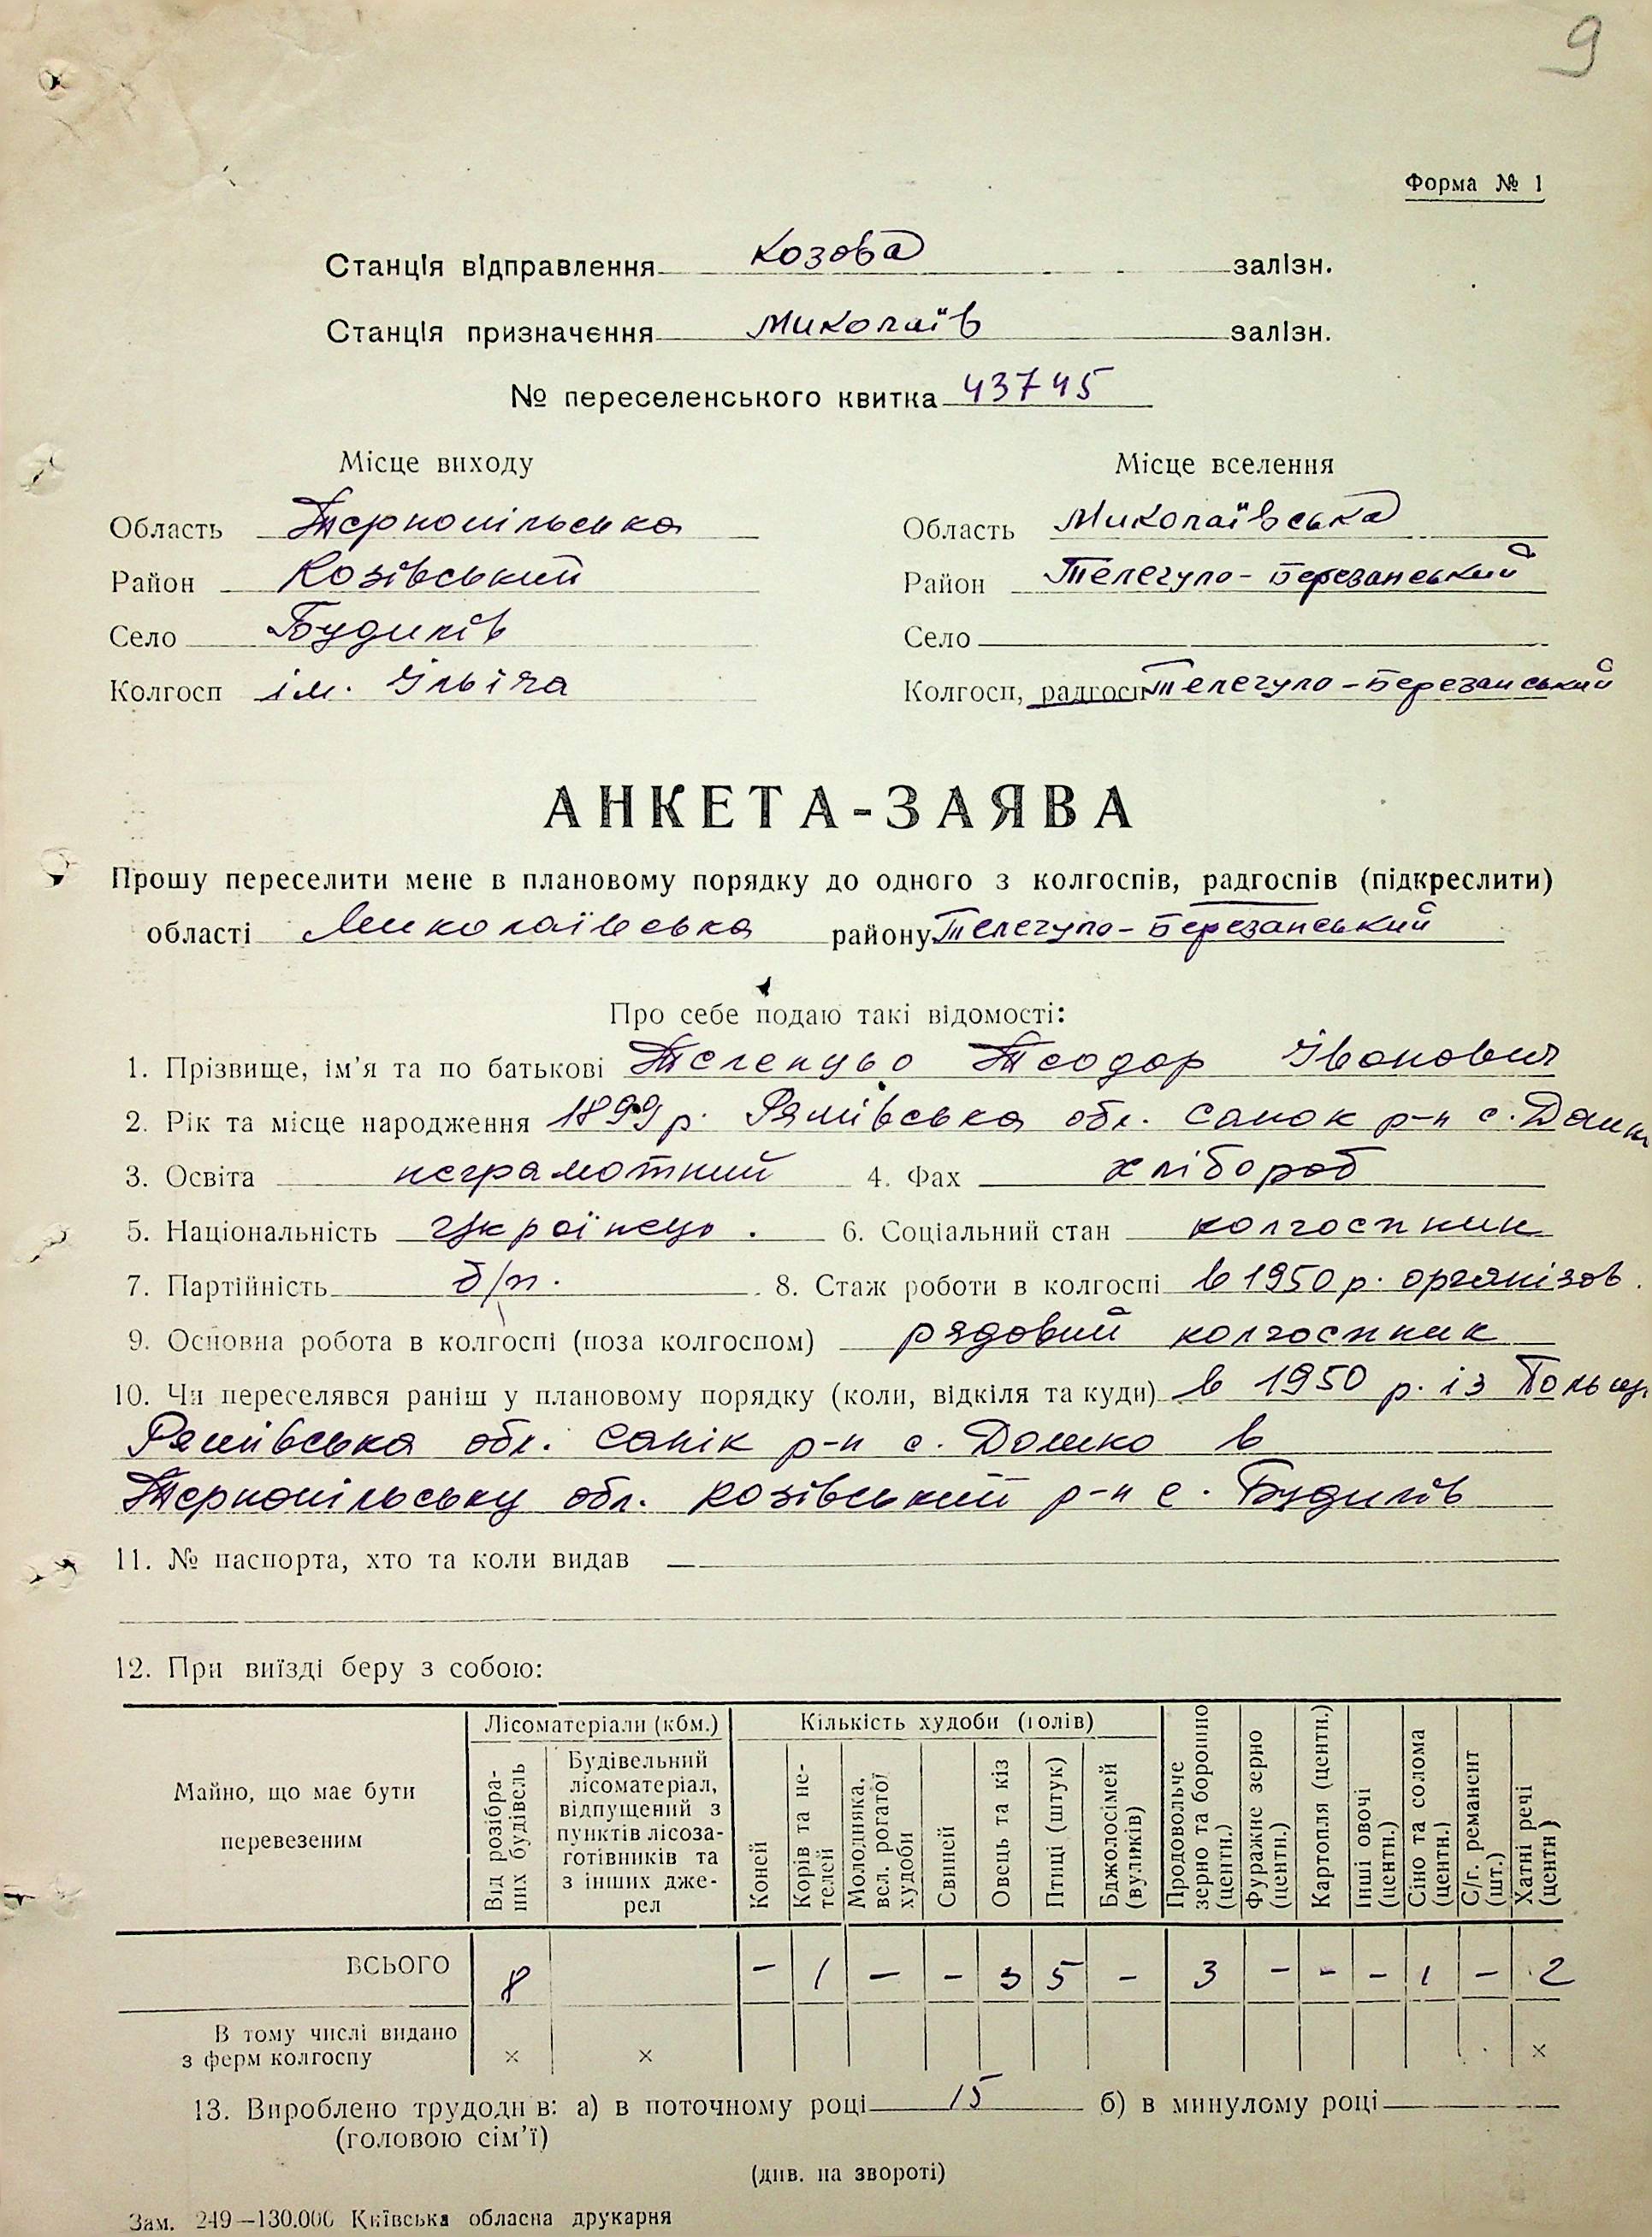 9
Форма № 1
Станція відправлення Козова залізн.
Станція призначення Миколаїв залізн.
№ переселенського квитка 43745
Місце виходу Місце вселення
Область Тернопільська Область Миколаївська
Район Козівський Район Телегуло-Березанський
Село Будилів Село
Колгосп ім. Ілліча Колгосп, радгосп Телегуло-Березанський
АНКЕТА-ЗАЯВА
Прошу переселити мене в плановому порядку до одного з колгоспів, радгоспів (підкреслити)
області Миколаївська району Телегуло-Березанський
Про себе подаю такі відомості:
1. Прізвище, ім'я та по батькові Теодор Іванович
2. Рік та місце народження 1899 р. Ряшівська обл. Санок р-н с.
3. Освіта неграмотний 4. Фах хлібороб
5. Національність українець. 6. Соціальний стан колгоспник
7. Партійність б/п. 8. Стаж роботи в колгоспі в 1950 р. організов.
9. Основна робота в колгоспі (поза колгоспом) рядовий колгоспник
10. Чи переселявся раніш у плановому порядку (коли, відкіля та куди) в 1950 р. із Польщі
Ряшівська обл. Санік р-н с. Дошно в
Тернопільську обл. Козівський р-н с. Будилів
11. № паспорта, хто та коли видав
12. При виїзді беру з собою:
Майно, що має бути перевезеним
Лісоматеріали (кбм.) Кількість худоби (голів)
Від розібраних будівель
Будівельний лісоматеріал, відпущений з пунктів лісозаготівників та з інших джерел
Коней
Корів та нетелей
Молодняка, вел. рогатої худоби
Свиней
Овець та кіз
Птиці (штук)
Бджолосімей (вуликів)
Продовольче зерно та борошно (центн.)
Фуражне зерно (центн.)
Картопля (центн.)
Інші овочі (центн.)
Сіно та солома (центн.)
С/г. реманент (шт.)
Хатні речі (центн)
ВСЬОГО 8 – 1 – – 3 5 – 3 – – – 1 – 2
В тому числі видано з ферм колгоспу × × ×
13. Вироблено трудоднів: а) в поточному році 15 б) в минулому році
(головою сім'ї)
(див. на звороті)
Зам. 249—130.000 Київська обласна друкарня